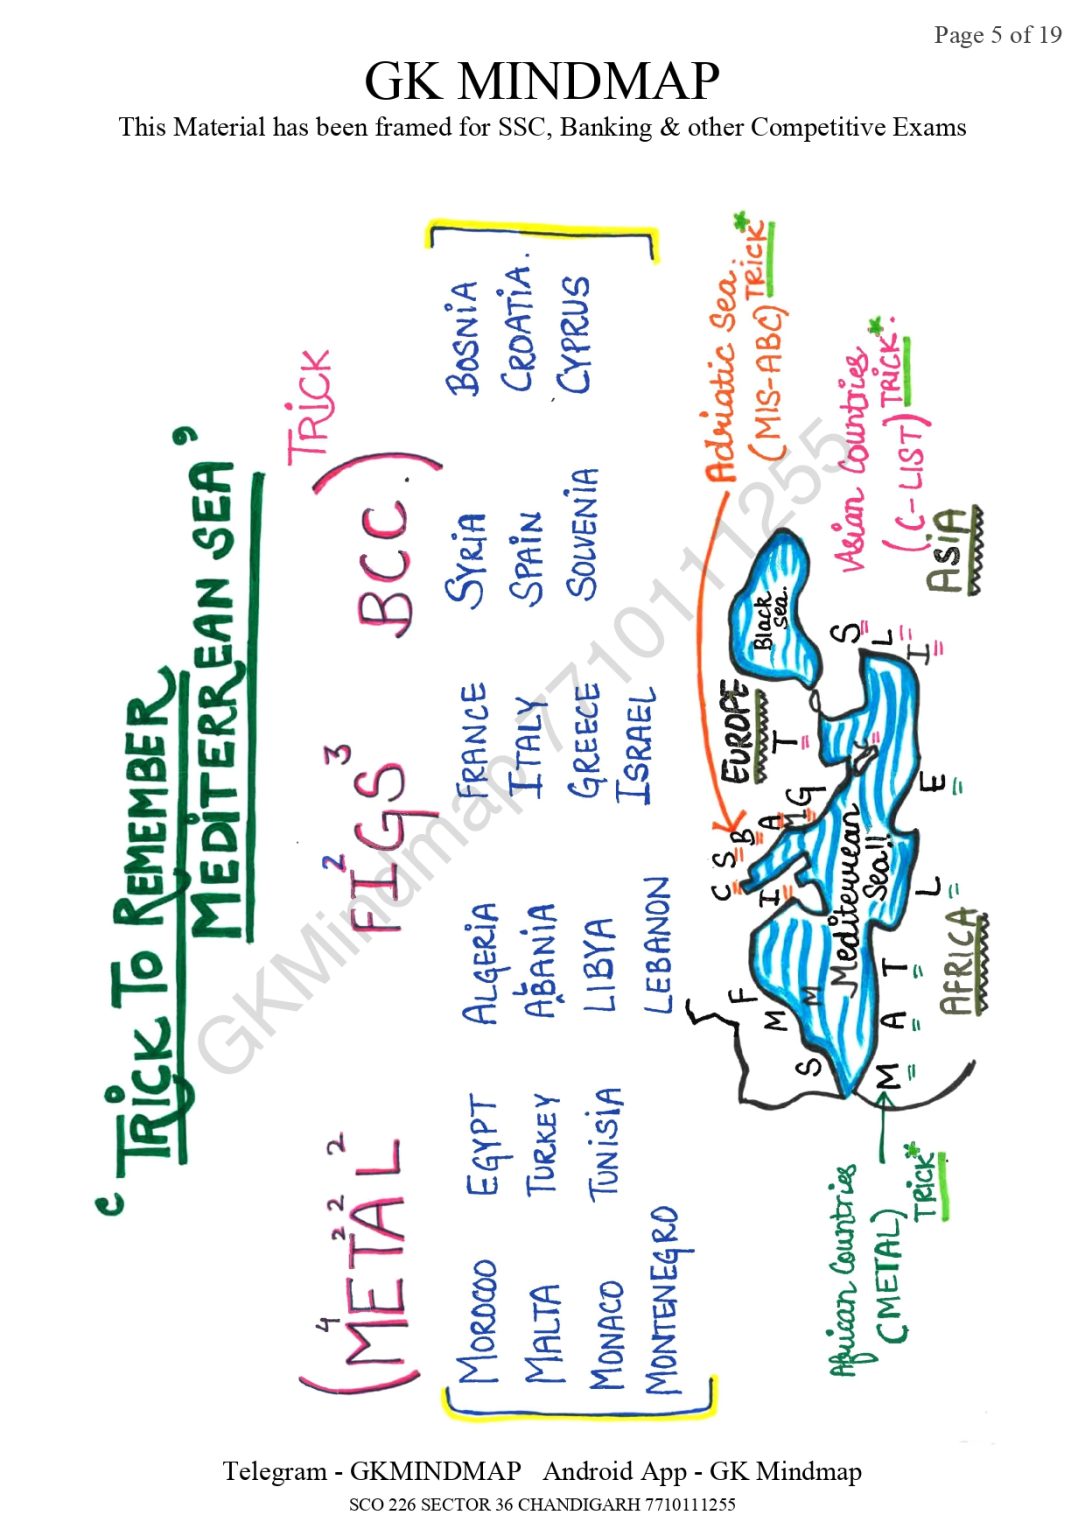 Page 5 of 19
GK MINDMAP
This Material has been framed for SSC, Banking & other Competitive Exams
"TRICK TO REMEMBER
MEDITERREAN SEA"
TRICK
(M⁴ET²A²L² FI²GS³ BCC.)
MOROCOO EGYPT ALGERIA FRANCE SYRIA BOSNIA
MALTA TURKEY ALBANIA ITALY SPAIN CROATIA.
MONACO TUNISIA LIBYA GREECE SOLVENIA CYPRUS
MONTENEGRO LEBANON ISRAEL
Adriatic Sea
(MIS-ABC) TRICK*
EUROPE
Black
Sea.
Asian Countries
(C-LIST) TRICK*.
ASIA
C S B A M G
I
T
S
L
I
C
F
M
M
S
Mediterrean
Sea!!
M A T L E
AFRICA
African Countries
(METAL)
TRICK*
GKMindmap 7710111255
Telegram - GKMINDMAP Android App - GK Mindmap
SCO 226 SECTOR 36 CHANDIGARH 7710111255